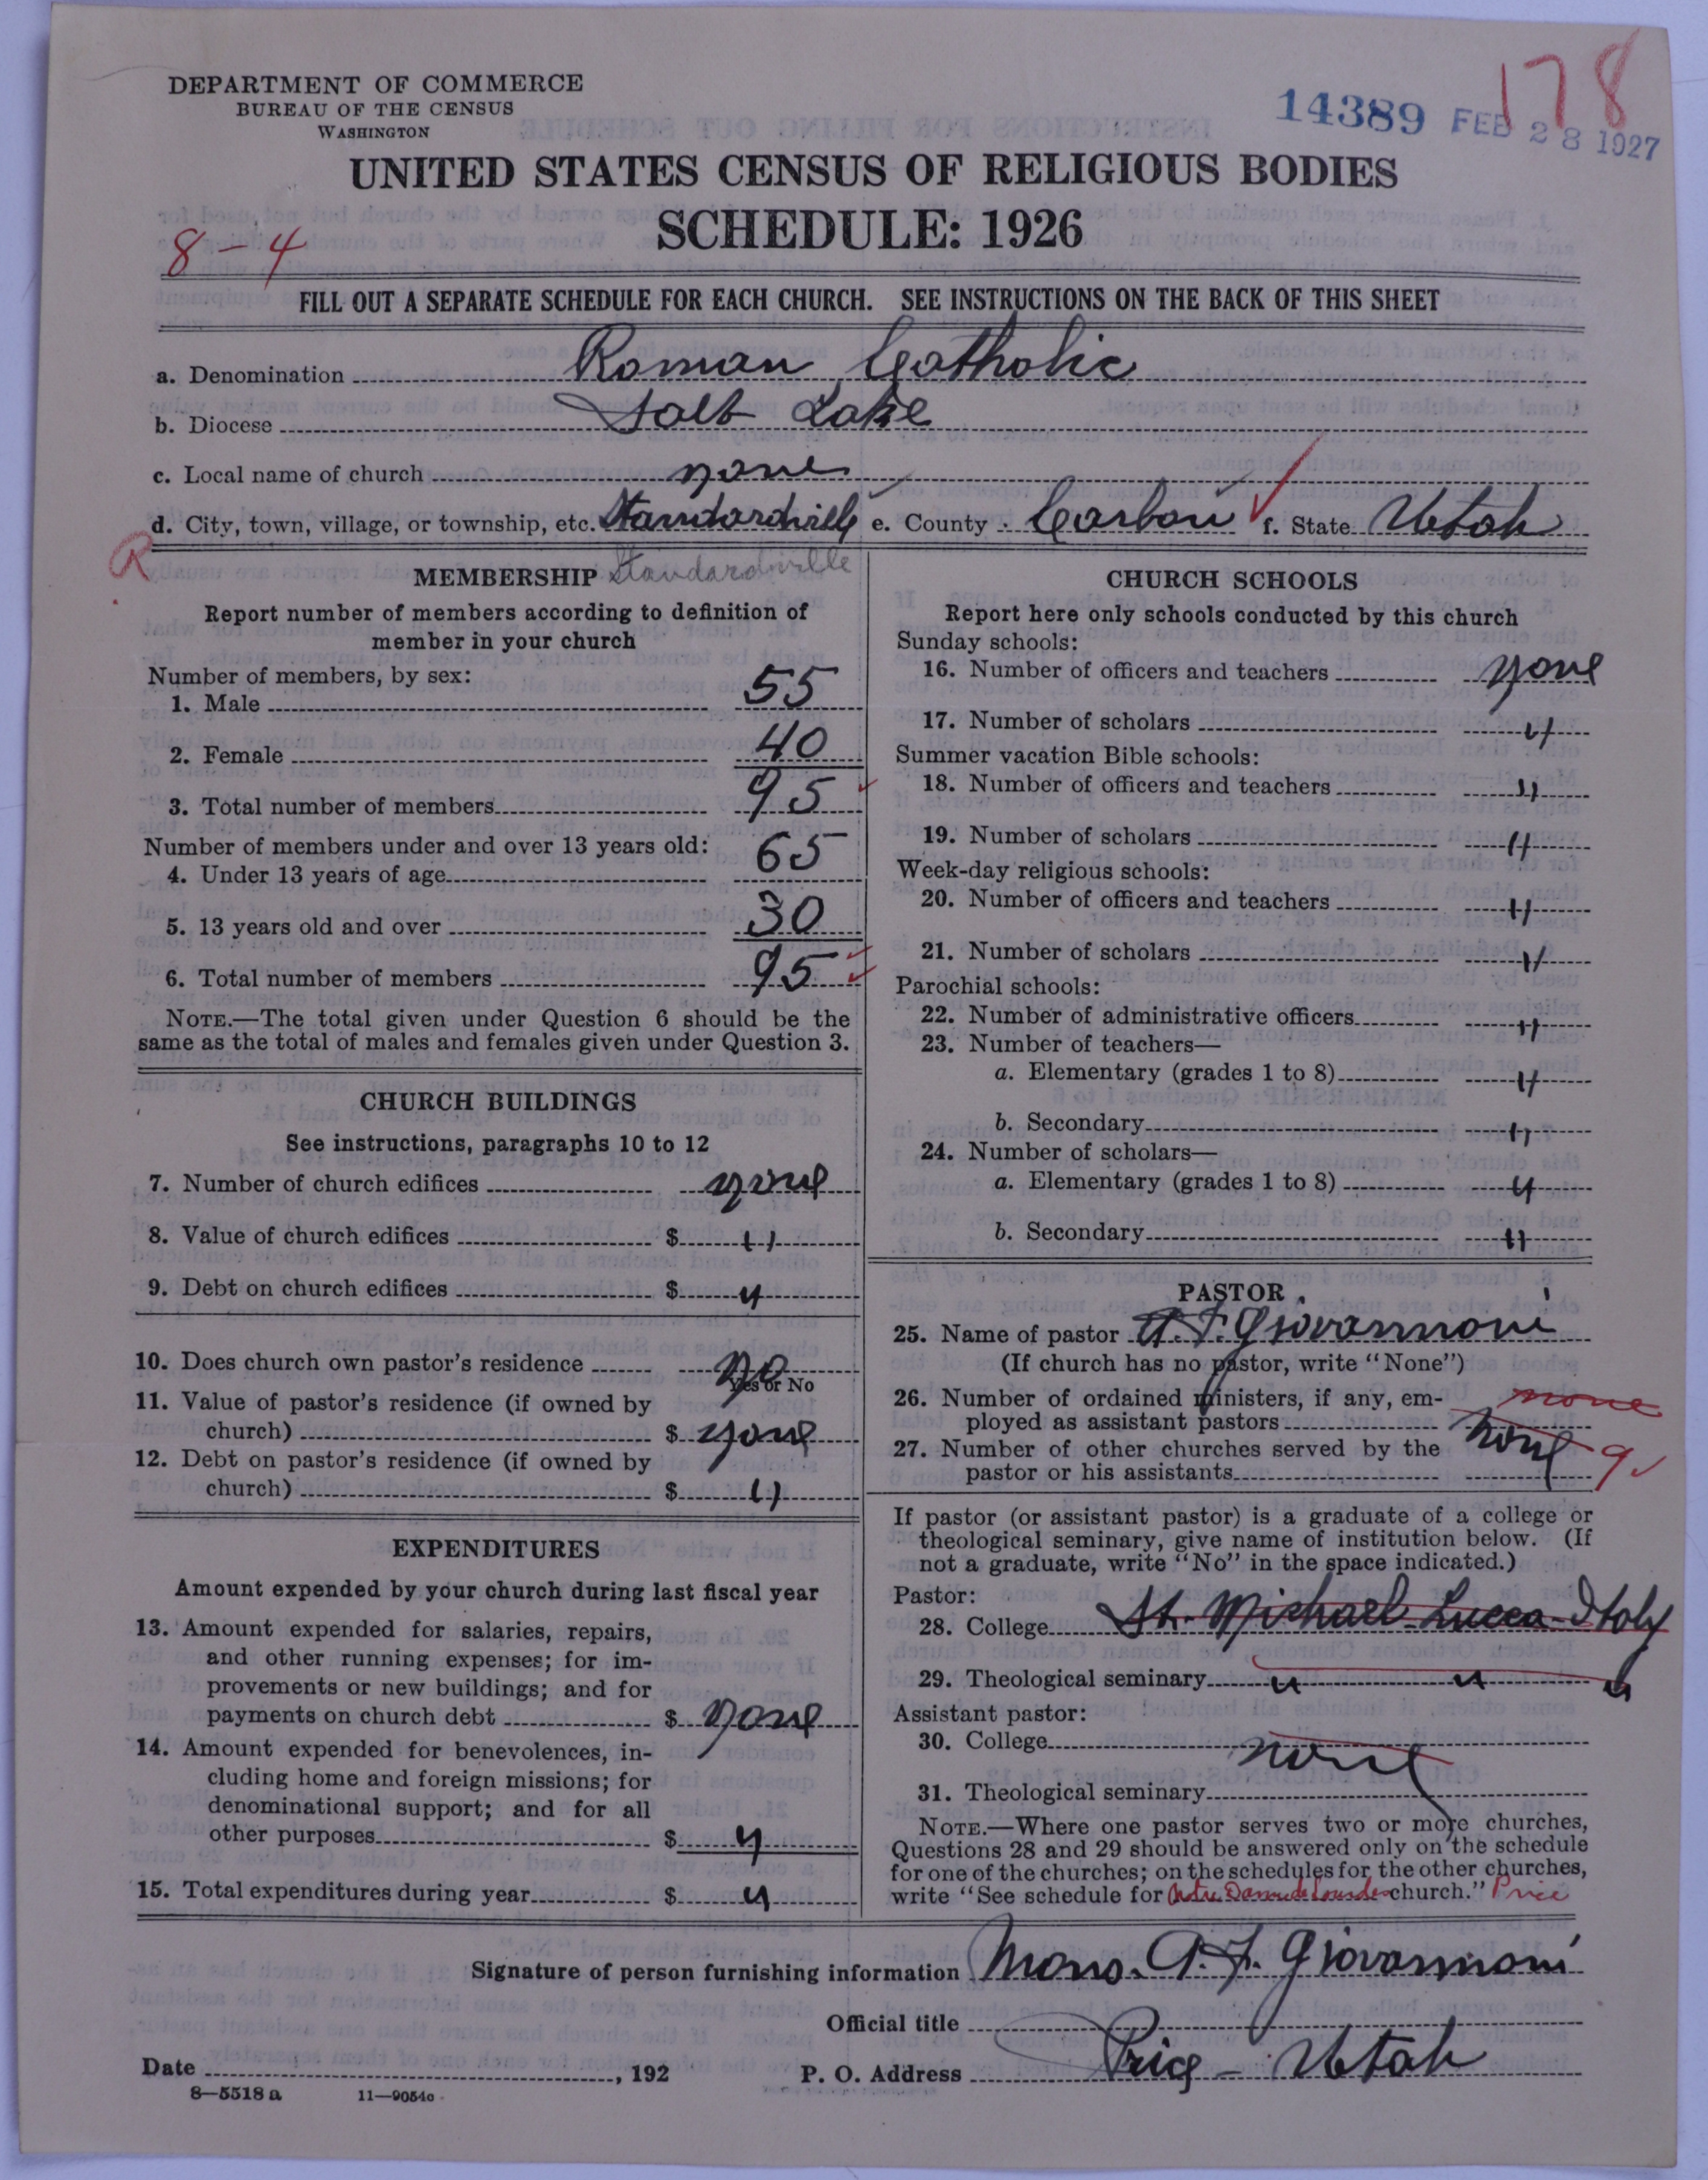 DEPARTMENT OF COMMERCE
BUREAU OF THE CENSUS
WASHINGTON
14389 FEB 28 1927
178
UNITED STATES CENSUS OF RELIGIOUS BODIES
SCHEDULE: 1926
8-4
FILL OUT A SEPARATE SCHEDULE FOR EACH CHURCH. SEE INSTRUCTIONS ON THE BACK OF THIS SHEET
a. Denomination Roman Catholic
b. Diocese Salt Lake
c. Local name of church none
d. City, town, village, or township, etc. Standardville e. County Carbon f. State Utah
R
MEMBERSHIP Standardville
Report number of members according to definition of
member in your church
Number of members, by sex:
1. Male 55
2. Female 40
3. Total number of members 95
Number of members under and over 13 years old:
4. Under 13 years of age 65
5. 13 years old and over 30
6. Total number of members 95
NOTE.—The total given under Question 6 should be the
same as the total of males and females given under Question 3.
CHURCH BUILDINGS
See instructions, paragraphs 10 to 12
7. Number of church edifices none
8. Value of church edifices $ "
9. Debt on church edifices $ "
10. Does church own pastor's residence no
Yes or No
11. Value of pastor's residence (if owned by
church) $ none
12. Debt on pastor's residence (if owned by
church) $ "
EXPENDITURES
Amount expended by your church during last fiscal year
13. Amount expended for salaries, repairs,
and other running expenses; for im-
provements or new buildings; and for
payments on church debt $ none
14. Amount expended for benevolences, in-
cluding home and foreign missions; for
denominational support; and for all
other purposes $ "
15. Total expenditures during year $ "
CHURCH SCHOOLS
Report here only schools conducted by this church
Sunday schools:
16. Number of officers and teachers none
17. Number of scholars "
Summer vacation Bible schools:
18. Number of officers and teachers "
19. Number of scholars "
Week-day religious schools:
20. Number of officers and teachers "
21. Number of scholars "
Parochial schools:
22. Number of administrative officers "
23. Number of teachers—
a. Elementary (grades 1 to 8) "
b. Secondary "
24. Number of scholars—
a. Elementary (grades 1 to 8) "
b. Secondary "
PASTOR
25. Name of pastor A. F. Giovannoni
(If church has no pastor, write "None")
26. Number of ordained ministers, if any, em- none
ployed as assistant pastors none
27. Number of other churches served by the
pastor or his assistants 9
If pastor (or assistant pastor) is a graduate of a college or
theological seminary, give name of institution below. (If
not a graduate, write "No" in the space indicated.)
Pastor:
28. College St. Michael - Lucca - Italy
29. Theological seminary " " "
Assistant pastor:
30. College none
31. Theological seminary
NOTE.—Where one pastor serves two or more churches,
Questions 28 and 29 should be answered only on the schedule
for one of the churches; on the schedules for the other churches,
write "See schedule for Notre Dame de Lourdes church." Price
Signature of person furnishing information Mons. A. F. Giovannoni
Official title
Date , 192 P. O. Address Price - Utah
8—5518 a 11—9054a